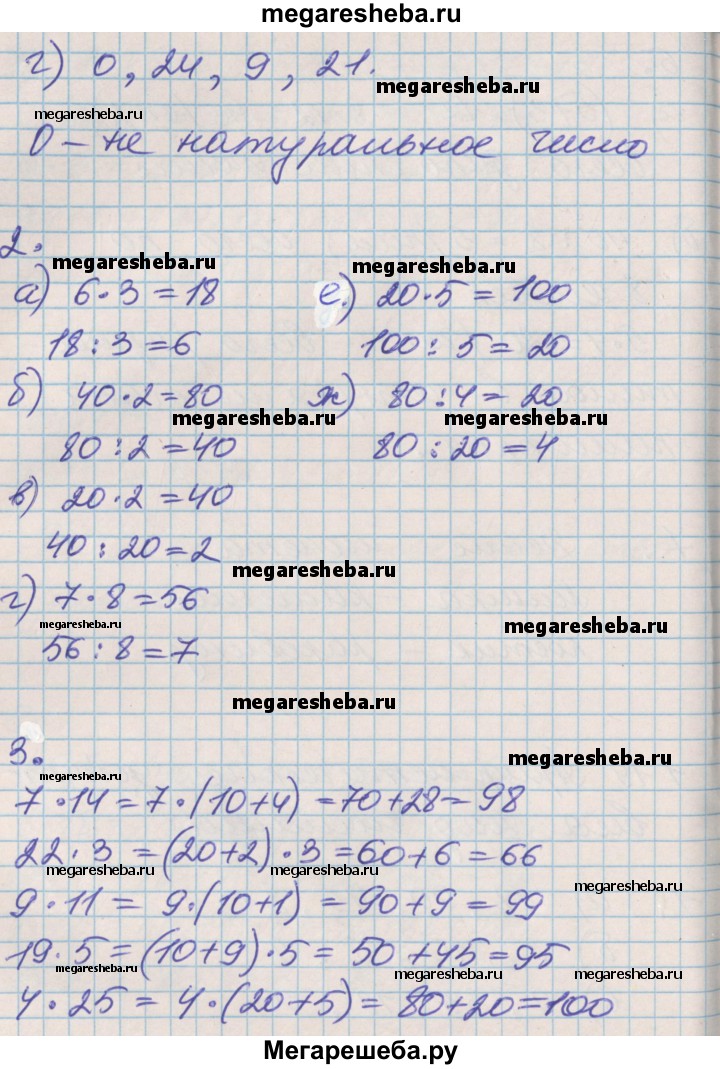 megaresheba.ru
г) 0, 24, 9, 21.
megaresheba.ru
megaresheba.ru
0 – не натуральное число
2.
megaresheba.ru
megaresheba.ru
а) 6·3=18
18:3=6
б) 40·2=80
megaresheba.ru
80:2=40
в) 20·2=40
40:20=2
г) 7·8=56
megaresheba.ru
56:8=7
е.) 20·5=100
100:5=20
ж) 80:4=20
megaresheba.ru
80:20=4
megaresheba.ru
megaresheba.ru
megaresheba.ru
3.
megaresheba.ru
megaresheba.ru
7·14=7·(10+4)=70+28=98
22·3=(20+2)·3=60+6=66
megaresheba.ru
megaresheba.ru
megaresheba.ru
9·11=9·(10+1)=90+9=99
19·5=(10+9)·5=50+45=95
megaresheba.ru
megaresheba.ru
megaresheba.ru
4·25=4·(20+5)=80+20=100
Мегарешеба.ру